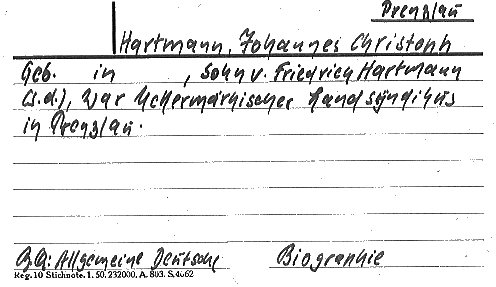 Prenzlau
Hartmann, Johannes Christoph
Geb. in , Sohn v. Friedrich Hartmann
(s.d.), war Uckermärkischer Landsyndikus
in Prenzlau.
B.Q.: Allgemeine Deutsche Biographie
Reg. 10 Stichnote. 1. 50. 232000. A. 803. S. 4662